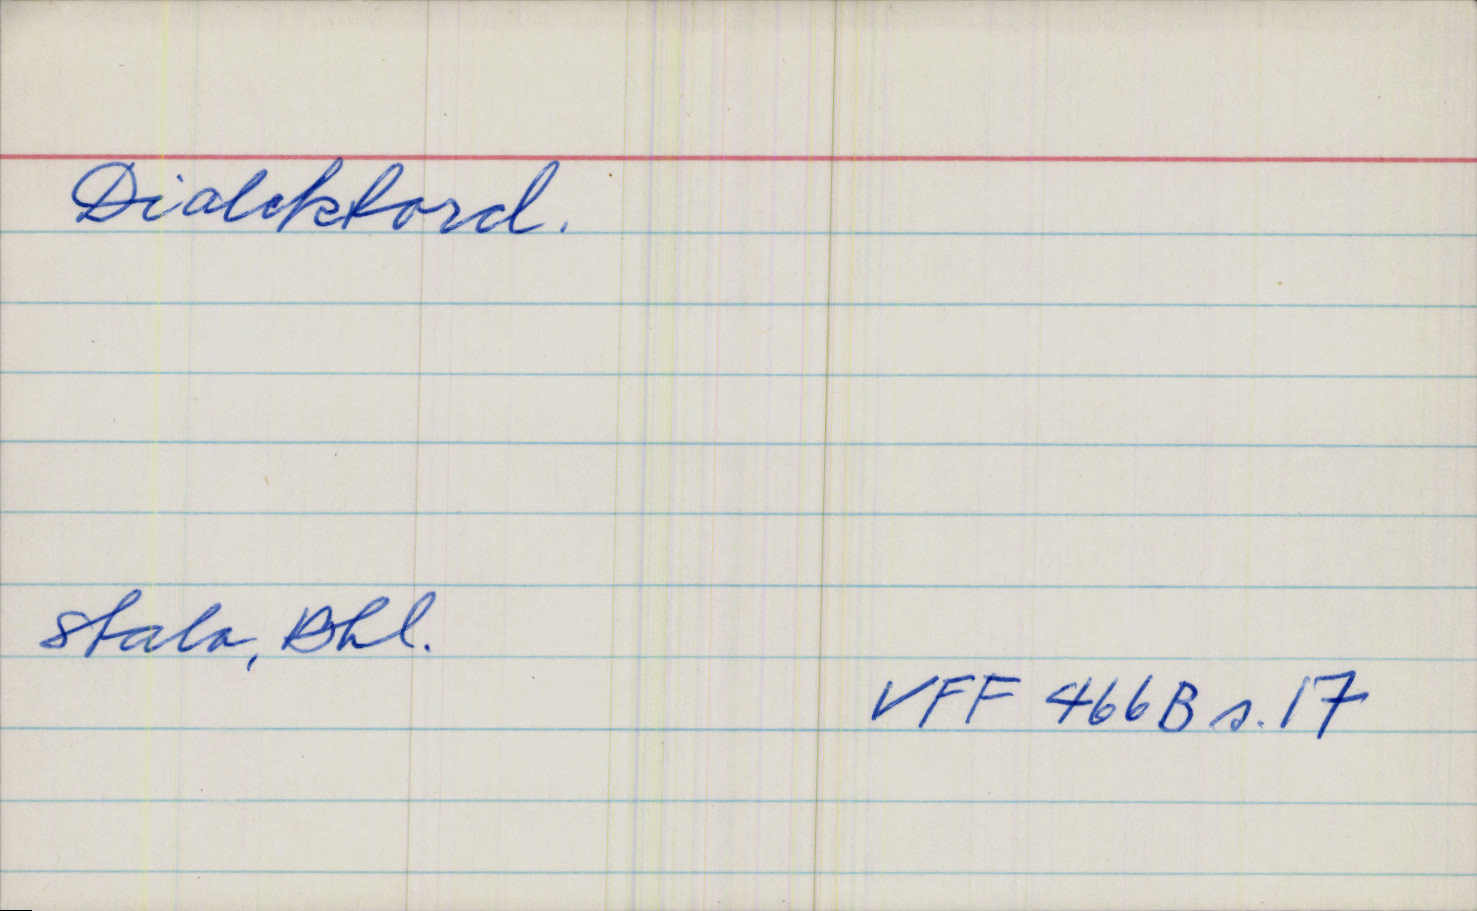 Dialektord.
Stala, Bhl.
VFF 466B s. 17